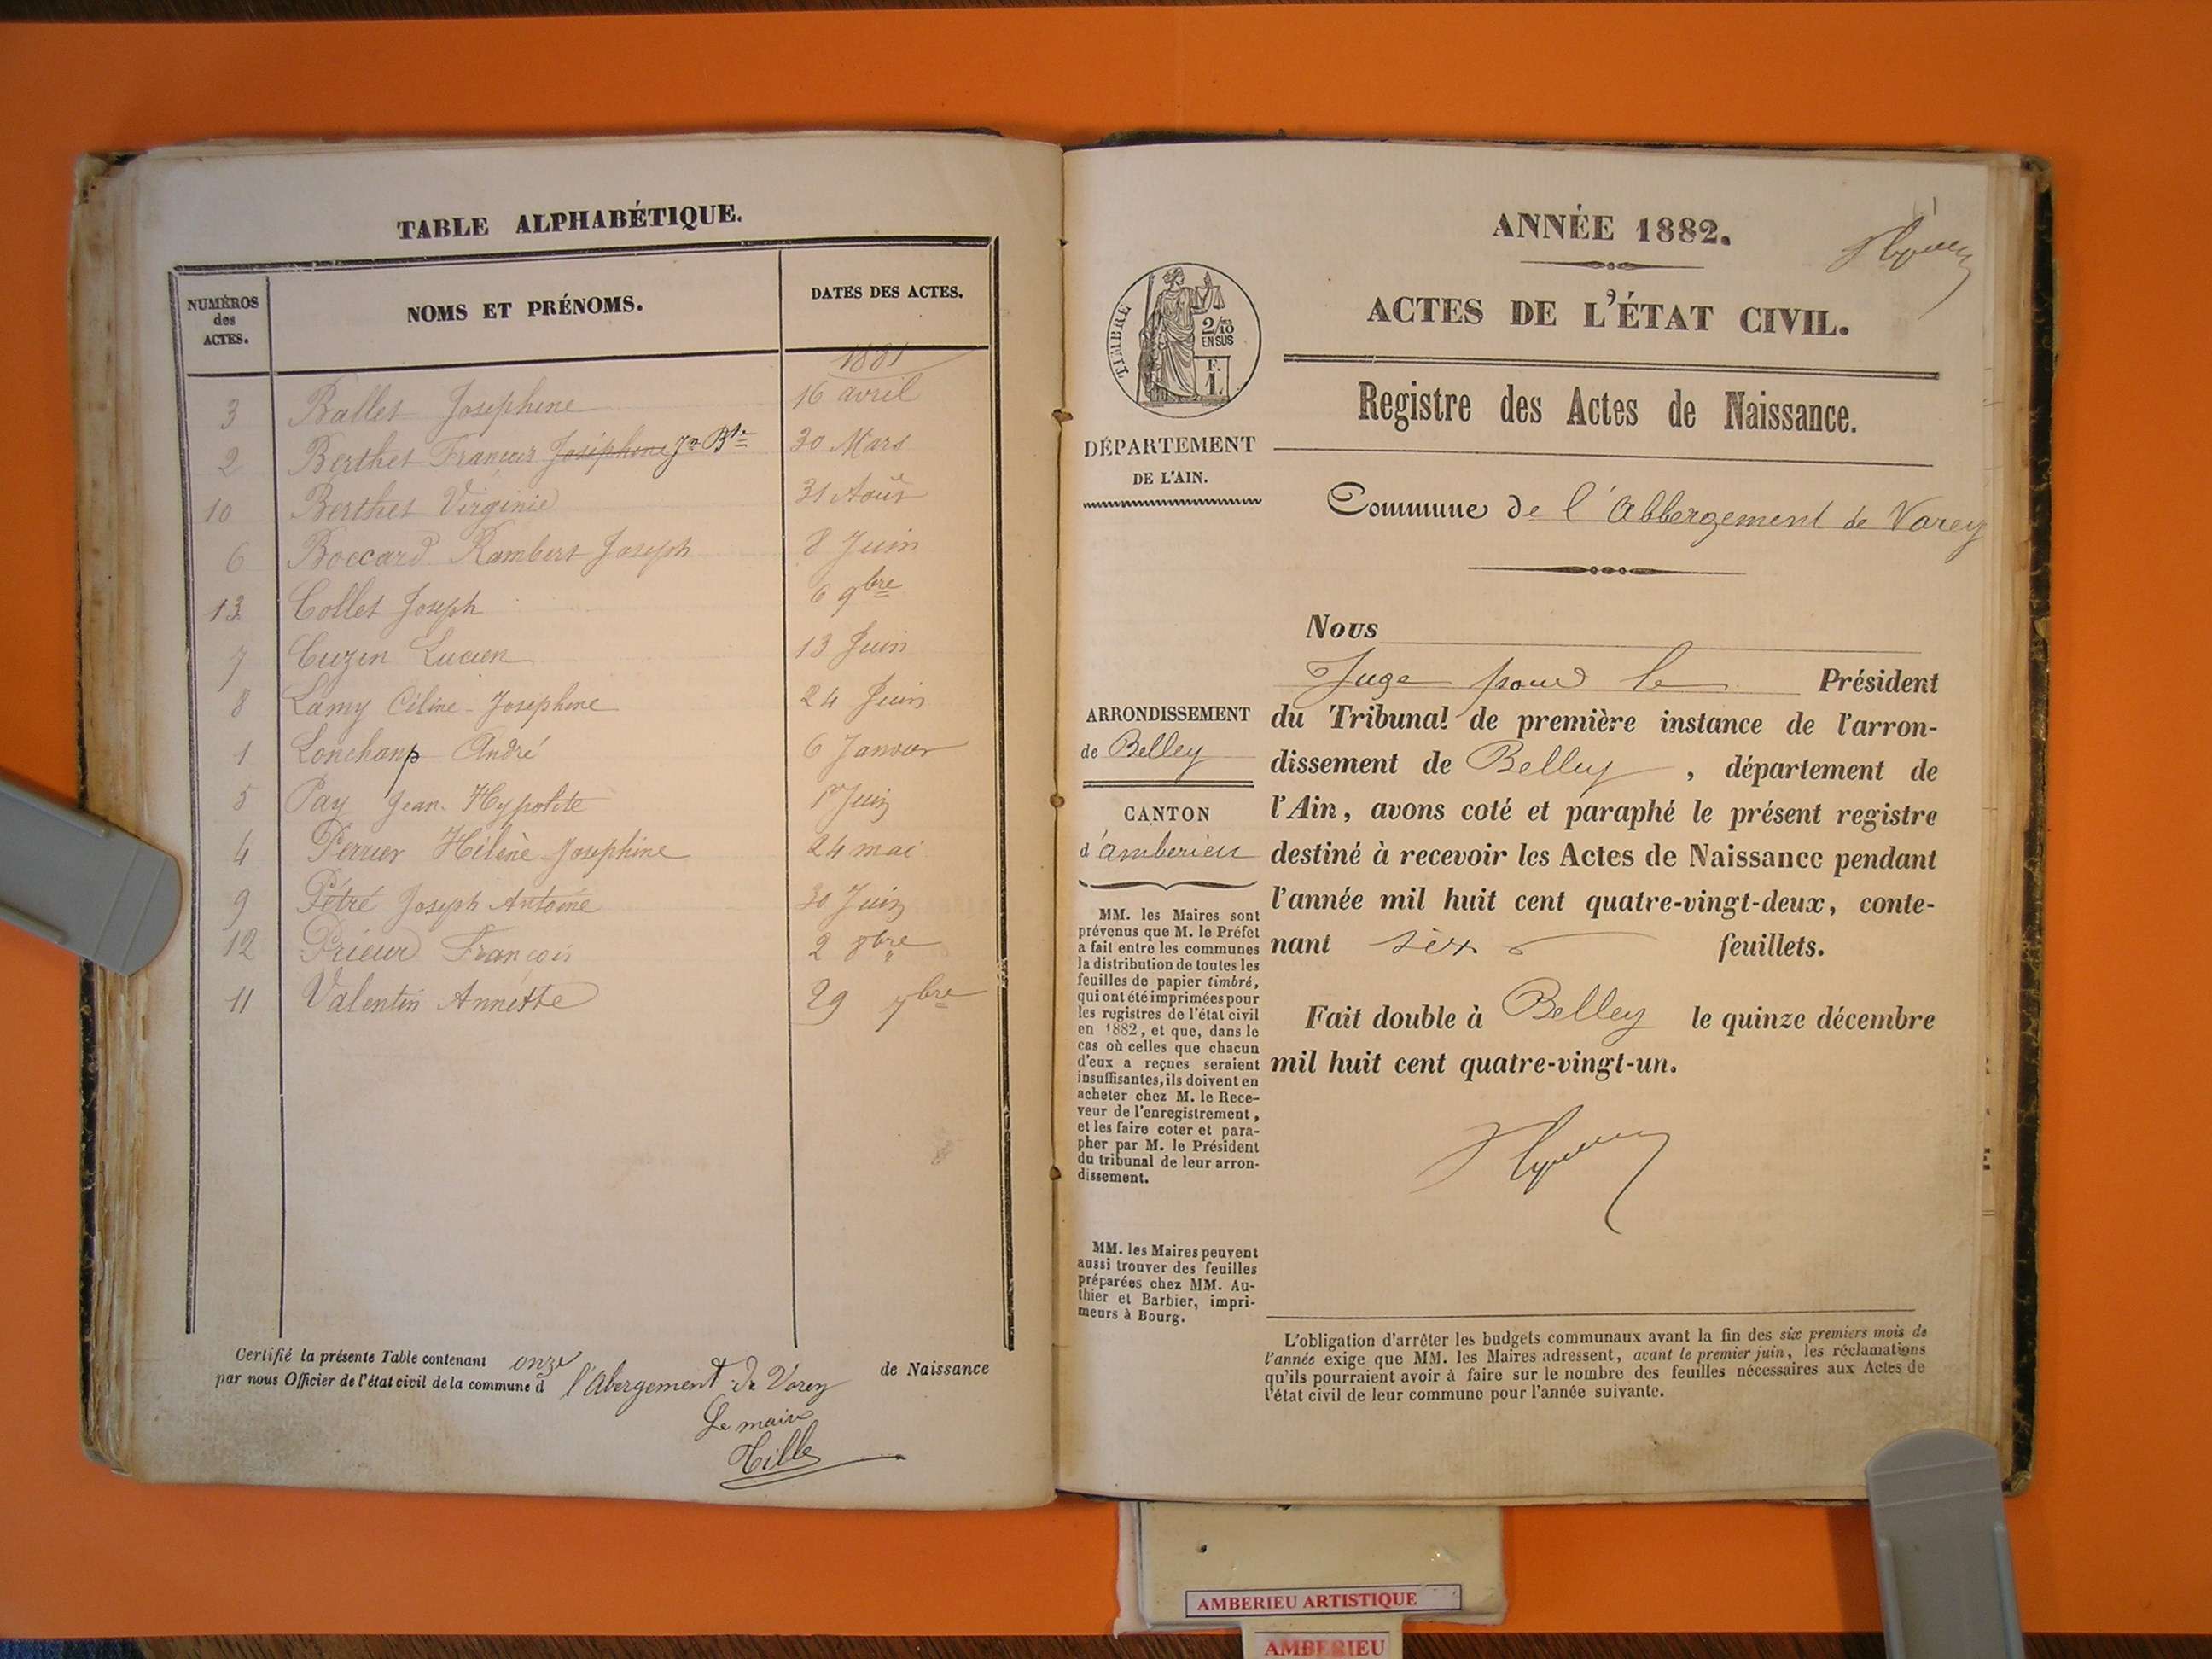 TABLE ALPHABÉTIQUE.
NUMÉROS
des
ACTES.
NOMS ET PRÉNOMS.
DATES DES ACTES.
1881
3 Ballet Joséphine 16 avril
2 Berthet François Joséphine Jn Bte 30 Mars
10 Berthet Virginie 31 Août
6 Boccard Rambert Joseph 8 Juin
13 Collet Joseph 6 9bre
7 Cuzin Lucien 13 Juin
8 Lamy Céline-Joséphine 24 Juin
1 Lonchanp André 6 Janvier
5 Pay Jean-Hypolite 1er Juin
4 Perrier Hélène-Joséphine 24 mai
9 Pétré Joseph Antoine 30 Juin
12 Prieur François 2 8bre
11 Valentin Annette 29 7bre
Certifié la présente Table contenant onze de Naissance
par nous Officier de l'état civil de la commune d l'Abergement de Varey
Le maire
Tille
ANNÉE 1882.
1
ACTES DE L'ÉTAT CIVIL.
TIMBRE
2/10
EN SUS
F.
1.
Registre des Actes de Naissance.
DÉPARTEMENT
DE L'AIN.
Commune de l'Abbergement de Varey
Nous
Juge pour le Président
du Tribunal de première instance de l'arron-
dissement de Belley, département de
l'Ain, avons coté et paraphé le présent registre
destiné à recevoir les Actes de Naissance pendant
l'année mil huit cent quatre-vingt-deux, conte-
nant six feuillets.
Fait double à Belley le quinze décembre
mil huit cent quatre-vingt-un.
ARRONDISSEMENT
de Belley
CANTON
d'amberieu
MM. les Maires sont
prévenus que M. le Préfet
a fait entre les communes
la distribution de toutes les
feuilles de papier timbré,
qui ont été imprimées pour
les registres de l'état civil
en 1882, et que, dans le
cas où celles que chacun
d'eux a reçues seraient
insuffisantes, ils doivent en
acheter chez M. le Rece-
veur de l'enregistrement,
et les faire coter et para-
pher par M. le Président
du tribunal de leur arron-
dissement.
MM. les Maires peuvent
aussi trouver des feuilles
préparées chez MM. Au-
thier et Barbier, impri-
meurs à Bourg.
L'obligation d'arrêter les budgets communaux avant la fin des six premiers mois de
l'année exige que MM. les Maires adressent, avant le premier juin, les réclamations
qu'ils pourraient avoir à faire sur le nombre des feuilles nécessaires aux Actes de
l'état civil de leur commune pour l'année suivante.
AMBERIEU ARTISTIQUE
AMBERIEU